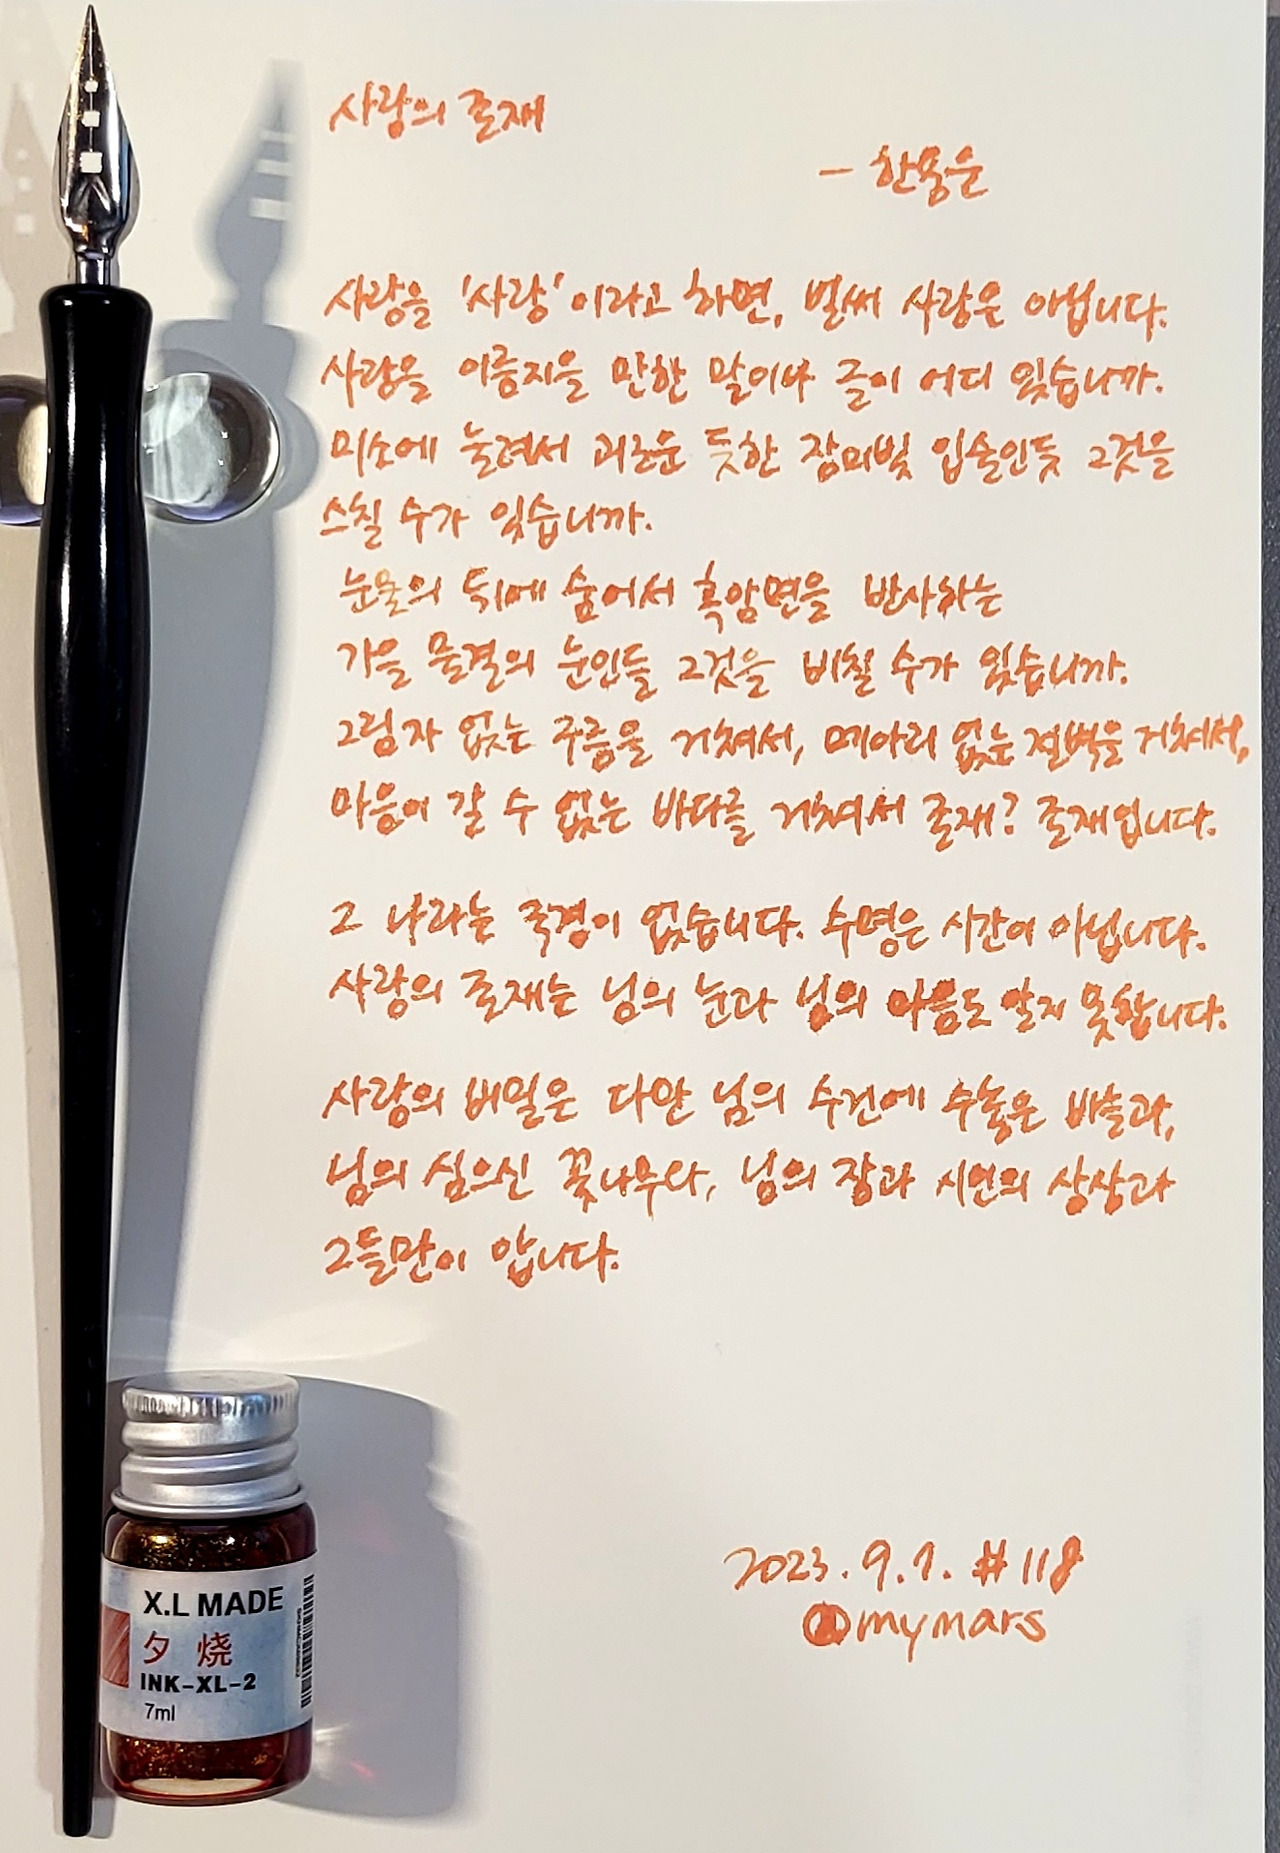 사랑의 존재
- 한용운
사랑을 '사랑'이라고 하면, 벌써 사랑은 아닙니다.
사랑을 이름지을 만한 말이나 글이 어디 있습니까.
미소에 눌려서 괴로운 듯한 장미빛 입술인들 그것을
스칠 수가 있습니까.
눈물의 뒤에 숨어서 흑암면을 반사하는
가을 물결의 눈인들 그것을 비칠 수가 있습니까.
그림자 없는 구름을 거쳐서, 메아리 없는 절벽을 거쳐서,
마음이 갈 수 없는 바다를 거쳐서 존재? 존재입니다.
그 나라는 국경이 없습니다. 수명은 시간이 아닙니다.
사랑의 존재는 님의 눈과 님의 마음도 알지 못합니다.
사랑의 비밀은 다만 님의 수건에 수놓은 바늘과,
님의 심으신 꽃나무와, 님의 잠과 시인의 상상과
그들만이 압니다.
2023.9.7. #118
@mymars
X.L MADE
夕 烧
INK-XL-2
7ml